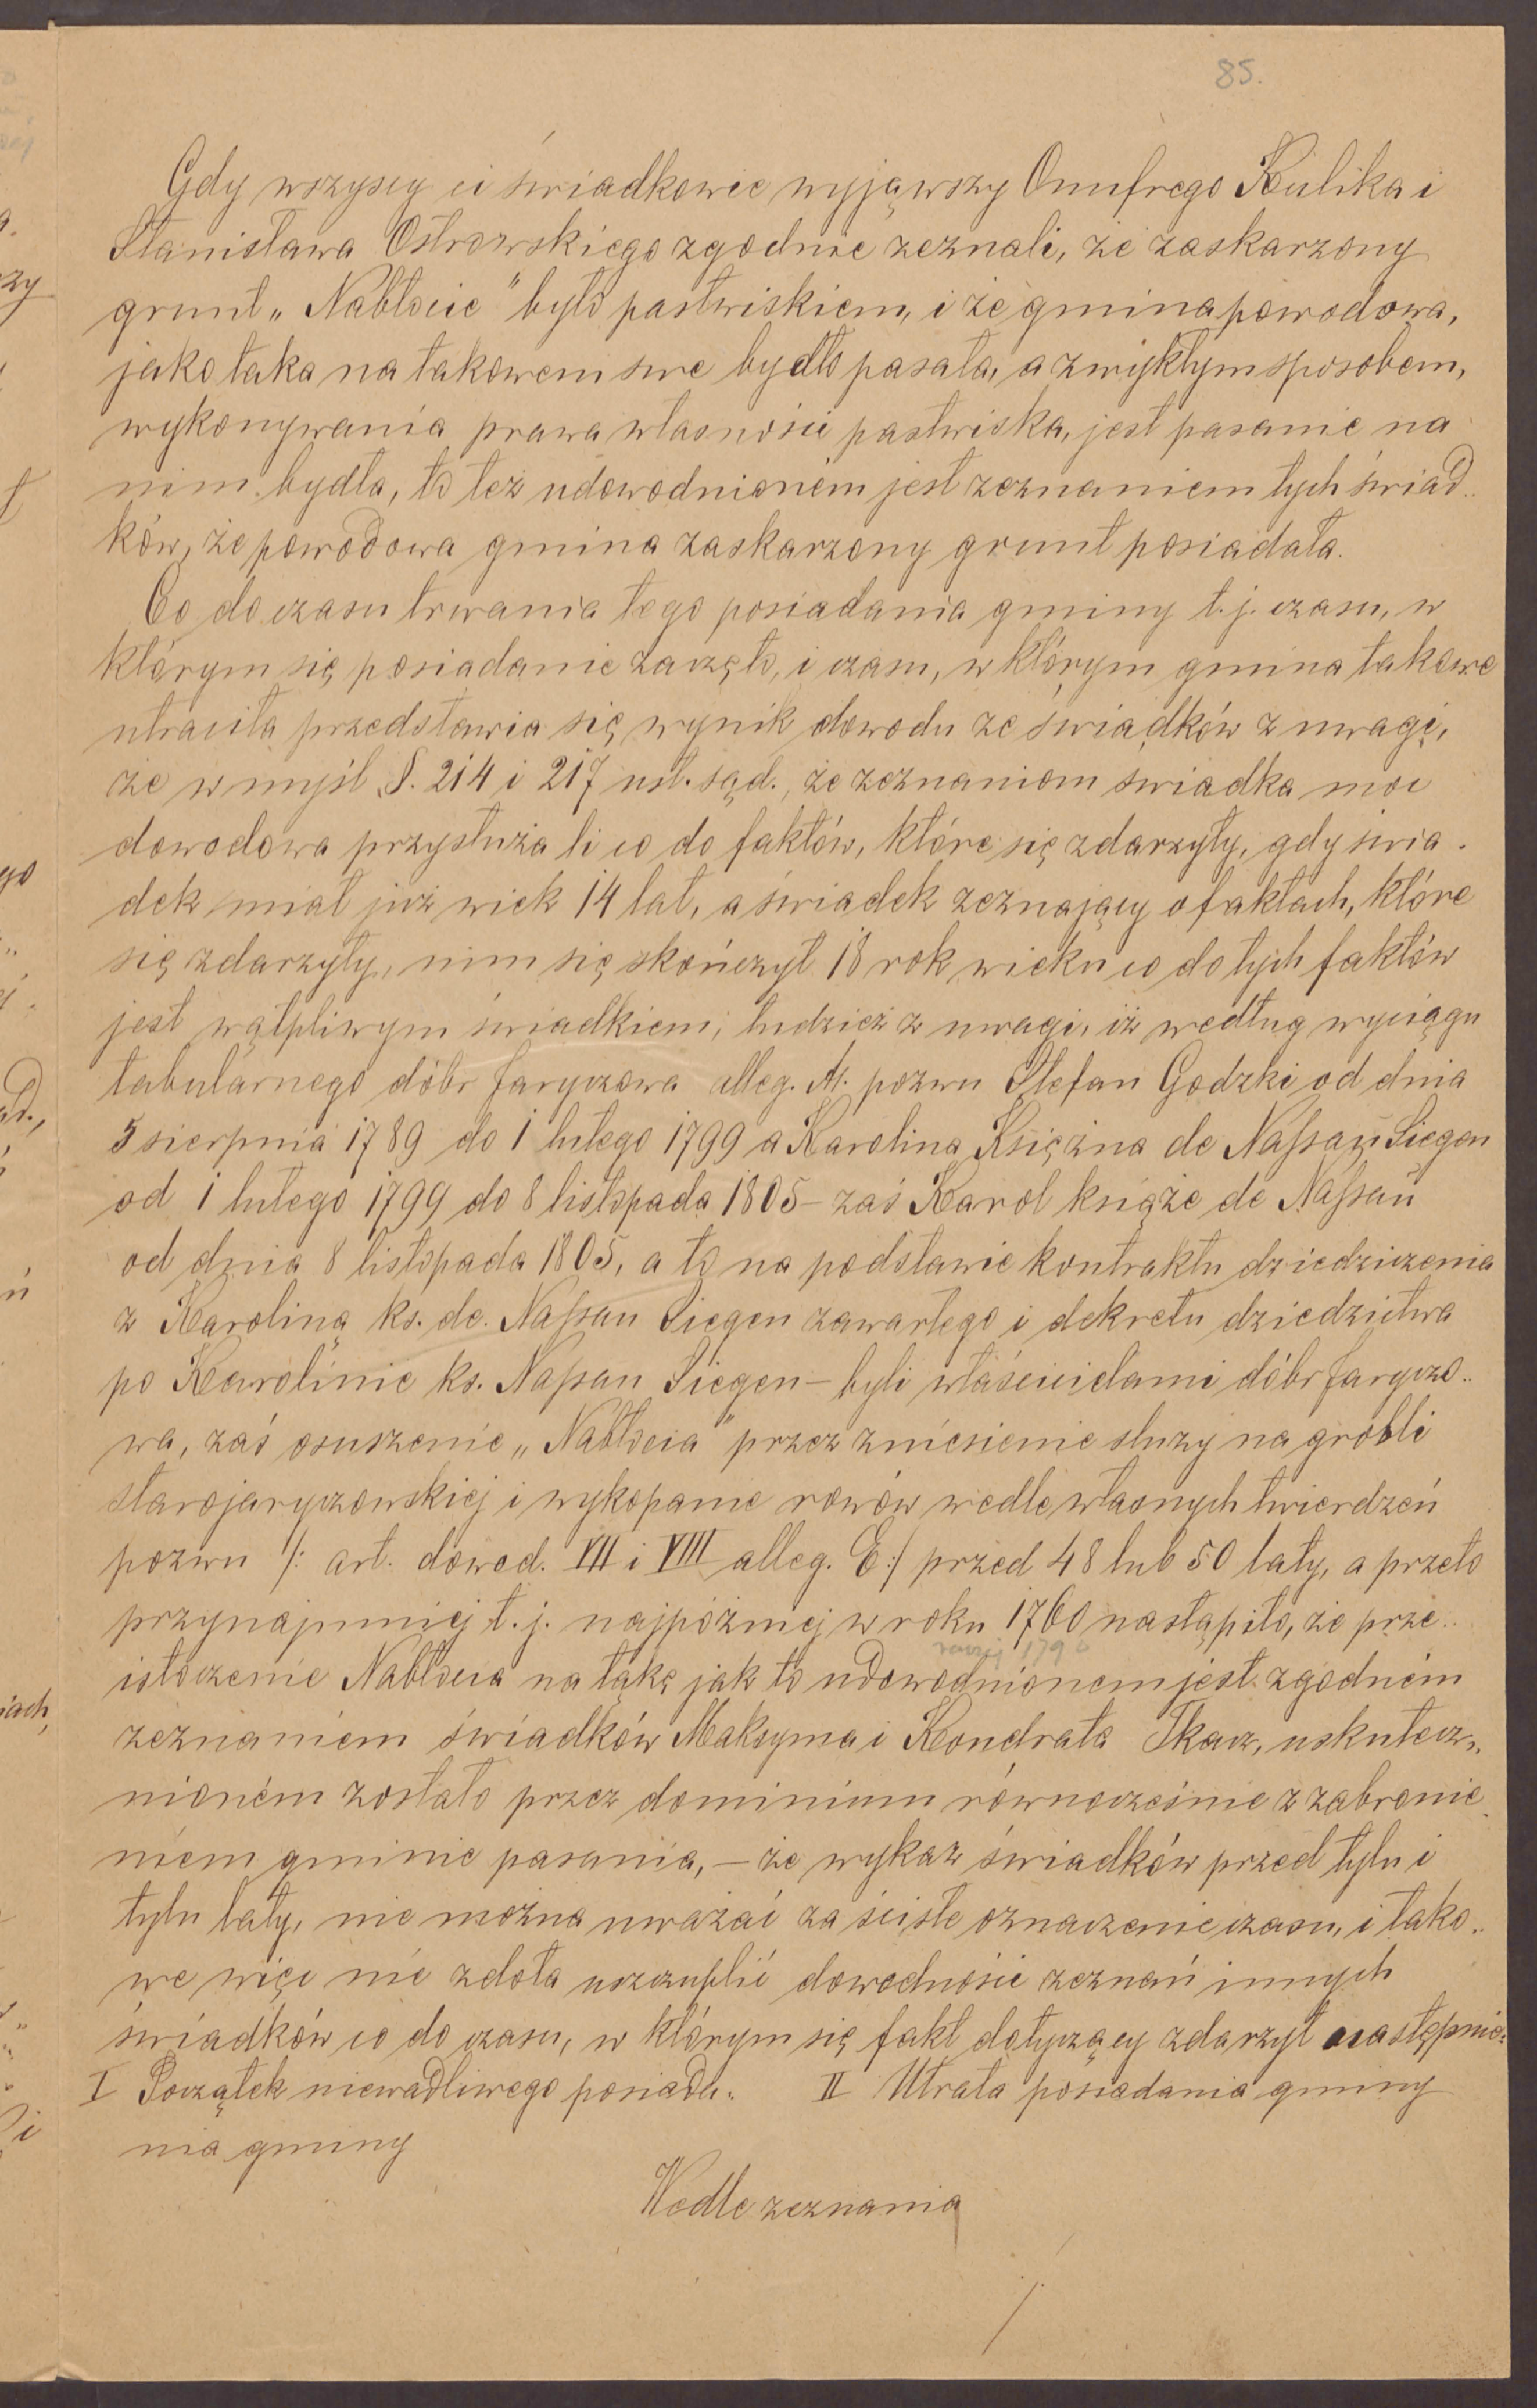 85.
Gdy wszyscy ci świadkowie wyjąwszy Onufrego Kulika i
Stanisława Ostrowskiego zgodnie zeznali, że zaskarzony
grunt „Nabłocie" było pastwiskiem, i że gmina powodowa,
jako taka na takowem swe bydło pasała, a zwykłym sposobem,
wykonywania prawa własności pastwiska, jest pasanie na
nim bydła, to też udowodnionem jest zeznaniem tych świad„
ków, że powodowa gmina zaskarzony grunt posiadała.
Co do czasu trwania tego posiadania gminy t. j. czasu, w
którym się posiadanie zaczęło, i czasu, w którym gmina takowe
utraciła przedstawia się wynik dowodu ze świadków z uwagi,
że w myśl §. 214 i 217 ust. sąd., że zeznaniom świadka moc
dowodowa przysłuża li co do faktów, które się zdarzyły, gdy świa.
dek miał już wiek 14 lat, a świadek zeznający o faktach, które
się zdarzyły, nim się skończył 18 rok wieku co do tych faktów
jest wątpliwym świadkiem, tudzież z uwagi, iż według wyciągu
tabularnego dóbr Jaryczowa alleg. A. pozwu Stefan Godzki od dnia
5 sierpnia 1789 do 1 lutego 1799 a Karolina Księżna de Nassau Siegen
od 1 lutego 1799 do 8 listopada 1805 – zaś Karol książe de Nassau
od dnia 8 listopada 1805, a to na podstawie kontraktu dziedziczenia
z Karoliną ks. de. Nassau Siegen zawartego i dekretu dziedzictwa
po Karolinie ks. Nassau Siegen – byli właścicielami dóbr Jaryczo„
wa, zaś osuszenie „Nabłocia" przez zniesienie śluzy na grobli
starojaryczowskiej i wykopanie rowów wedle własnych twierdzeń
pozwu /: art. dowod. VII i VIII alleg. E :/ przed 48 lub 50 laty, a przeto
przynajmniej t. j. najpóźniej w roku 1760 nastąpiło, że prze„
1790
istoczenie Nabłocia na łąkę jak to udowodnionem jest zgodnem
zeznaniem świadków Maksyma i Kondrata Tkacz, uskutecz„
nionem zostało przez dominium równocześnie z zabronie
niem gminie pasania, – że wykaz świadków przed tylu i
tylu laty, nie można uważać za ścisłe oznaczenie czasu, i tako„
we więc nie zdoła uszczuplić dowodności zeznań innych
świadków co do czasu, w którym się fakt dotyczący zdarzył następnie:
I Początek niewadliwego posiada„ II Utrata posiadania gminy
nia gminy
Wedle zeznania